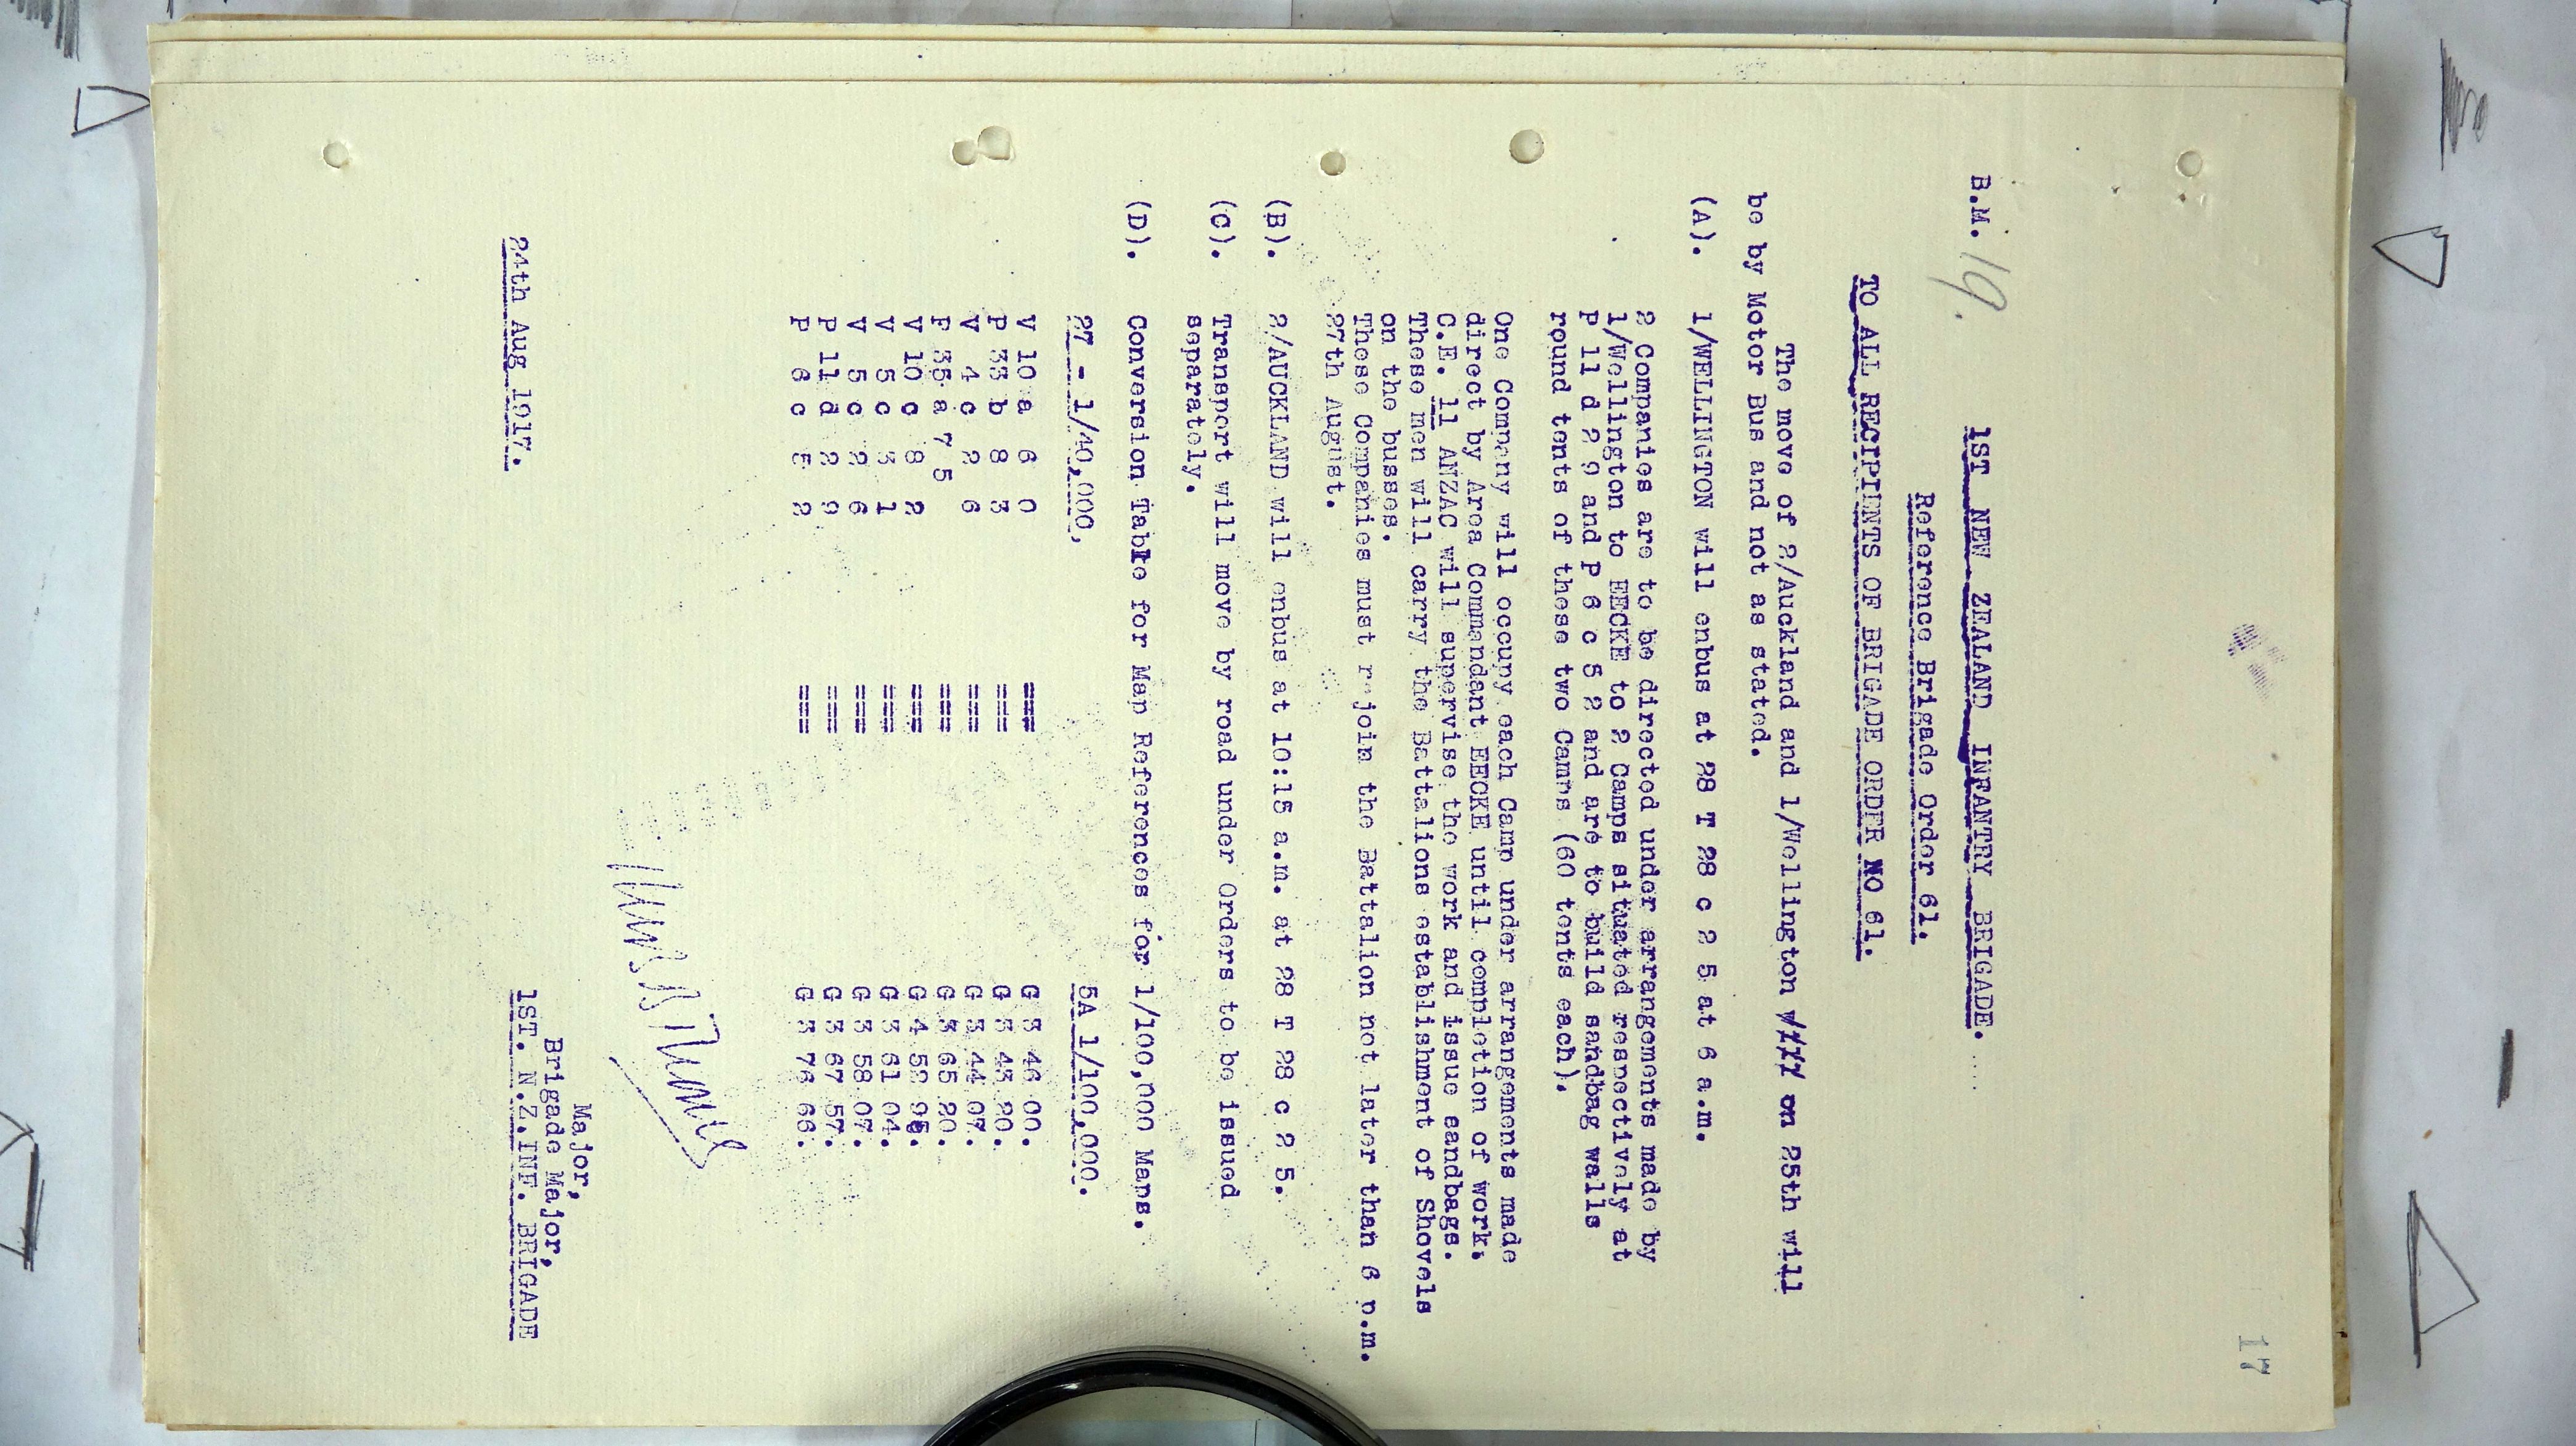 17
B.M. 19.
1ST NEW ZEALAND INFANTRY BRIGADE.
Reference Brigade Order 61.
TO ALL RECIPIENTS OF BRIGADE ORDER NO 61.
The move of 2/Auckland and 1/Wellington on 25th will
be by Motor Bus and not as stated.
(A). 1/WELLINGTON will enbus at 28 T 28 c 2 5 at 6 a.m.
2 Companies are to be directed under arrangements made by
1/Wellington to EECKE to 2 Camps situated respectively at
P 11 d 2 9 and P 6 c 5 2 and are to build sandbag walls
round tents of these two Camps (60 tents each).
One Company will occupy each Camp under arrangements made
direct by Area Commandant EECKE until completion of work.
C.E. 11 ANZAC will supervise the work and issue sandbags.
These men will carry the Battalions establishment of Shovels
on the busses.
These Companies must rejoin the Battalion not later than 6 p.m.
27th August.
(B). 2/AUCKLAND will enbus at 10:15 a.m. at 28 T 28 c 2 5.
(C). Transport will move by road under Orders to be issued
separately.
(D). Conversion Table for Map References for 1/100,000 Maps.
27 - 1/40,000. 5A 1/100,000.
V 10 a 6 0 === G 3 46 00.
P 33 b 8 3 === G 3 45 20.
V 4 c 2 6 === G 3 44 07.
P 35 a 7 5 === G 3 65 20.
V 10 c 8 2 === G 4 50 95.
V 5 c 3 1 === G 3 61 04.
V 5 c 2 6 === G 3 58 07.
P 11 d 2 9 === G 3 67 57.
P 6 c 5 2 === G 3 76 66.
Major,
Brigade Major,
24th Aug 1917. 1ST. N.Z.INF. BRIGADE